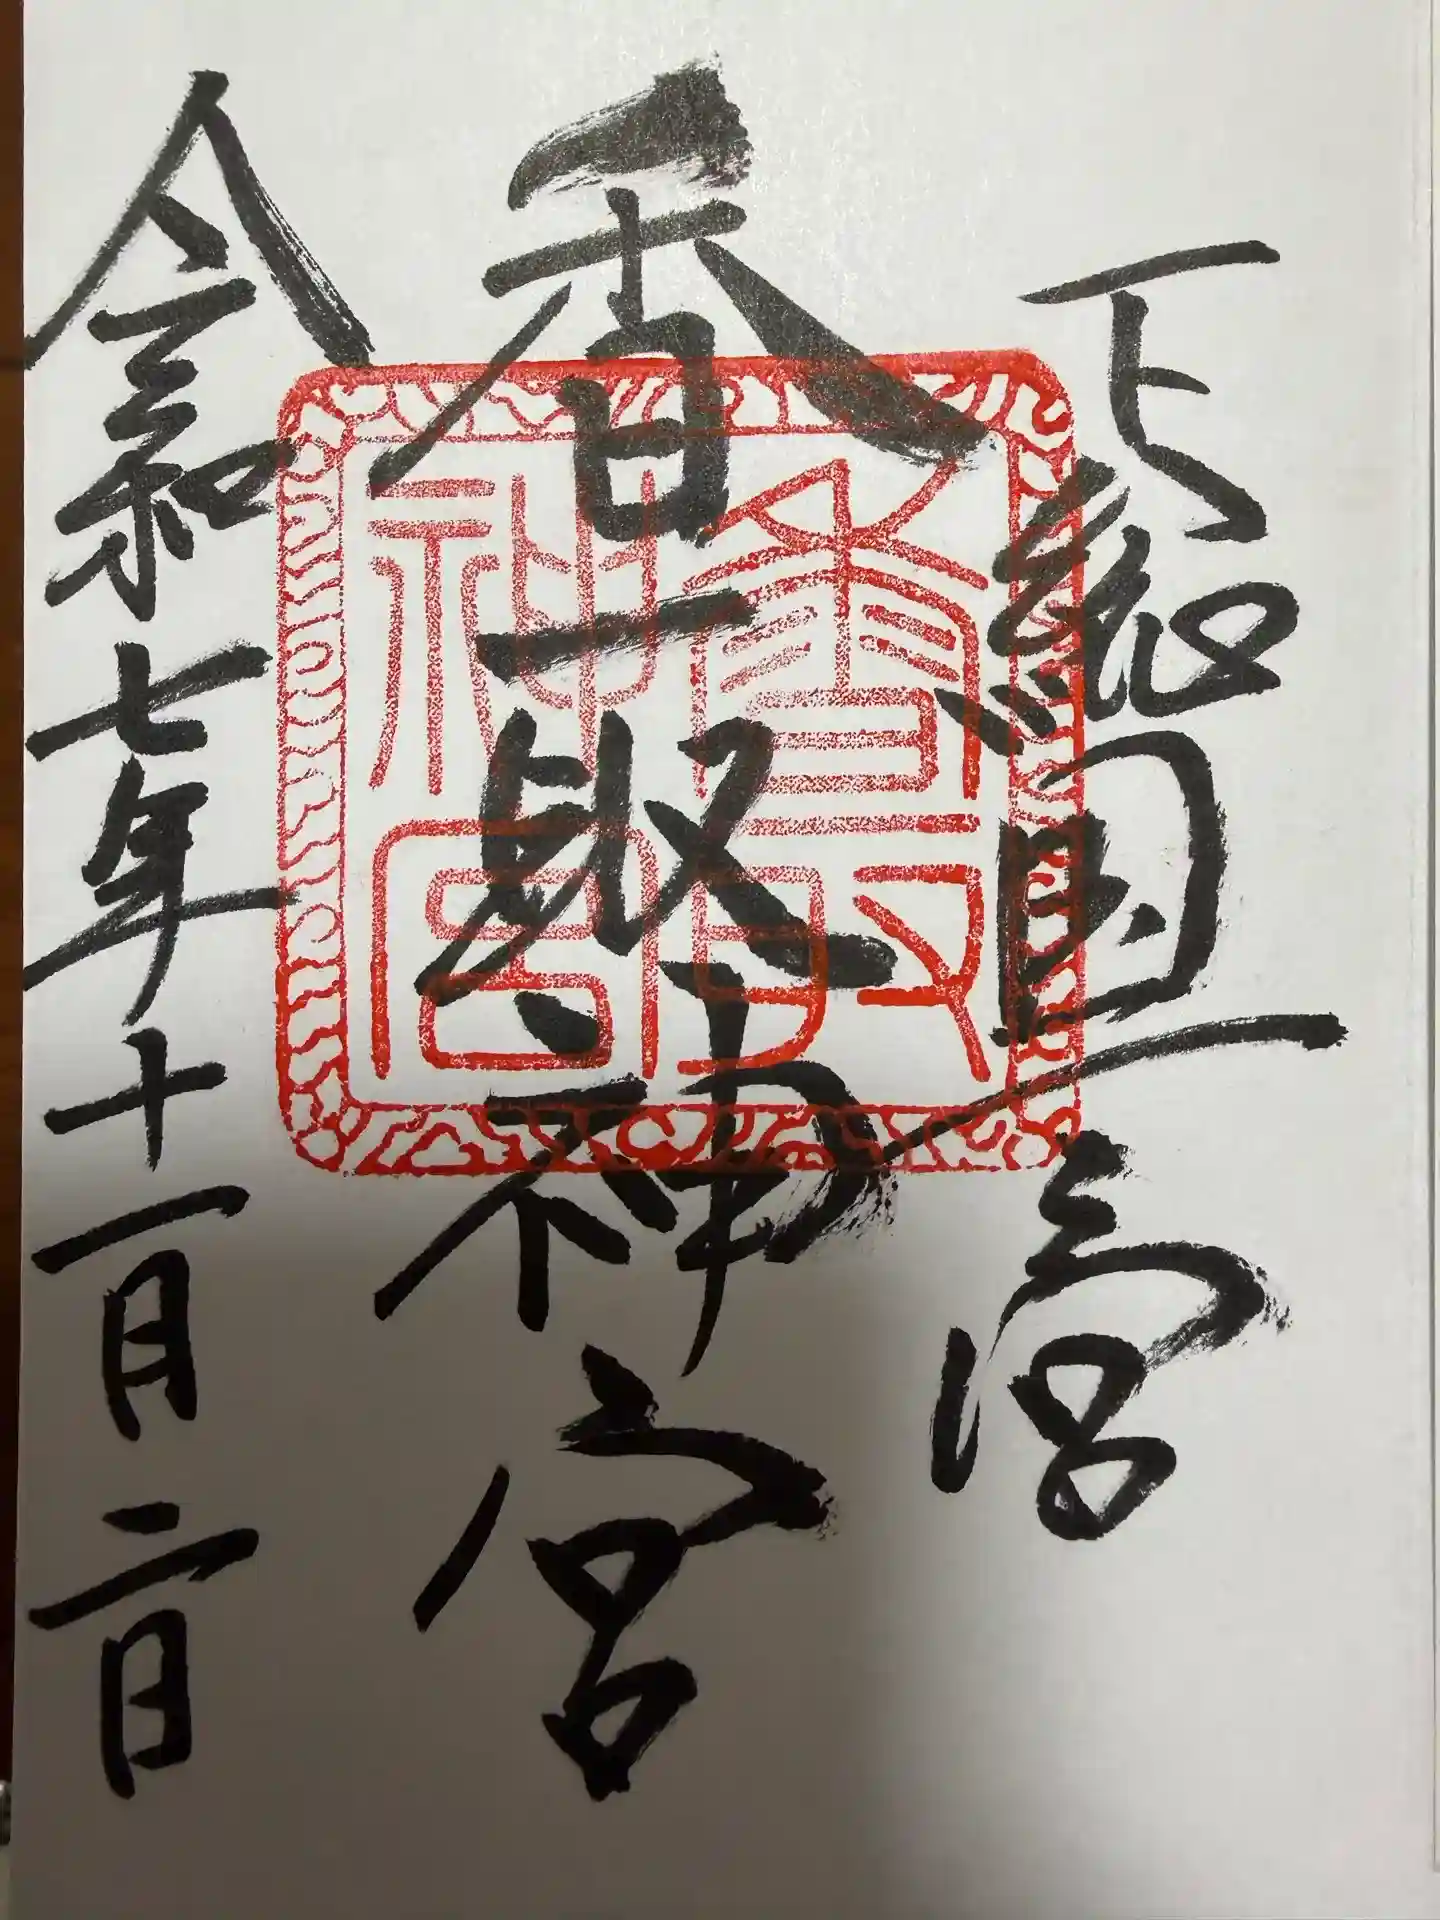 下総国一宮
香取神宮
令和七年十一月二日
香取神宮